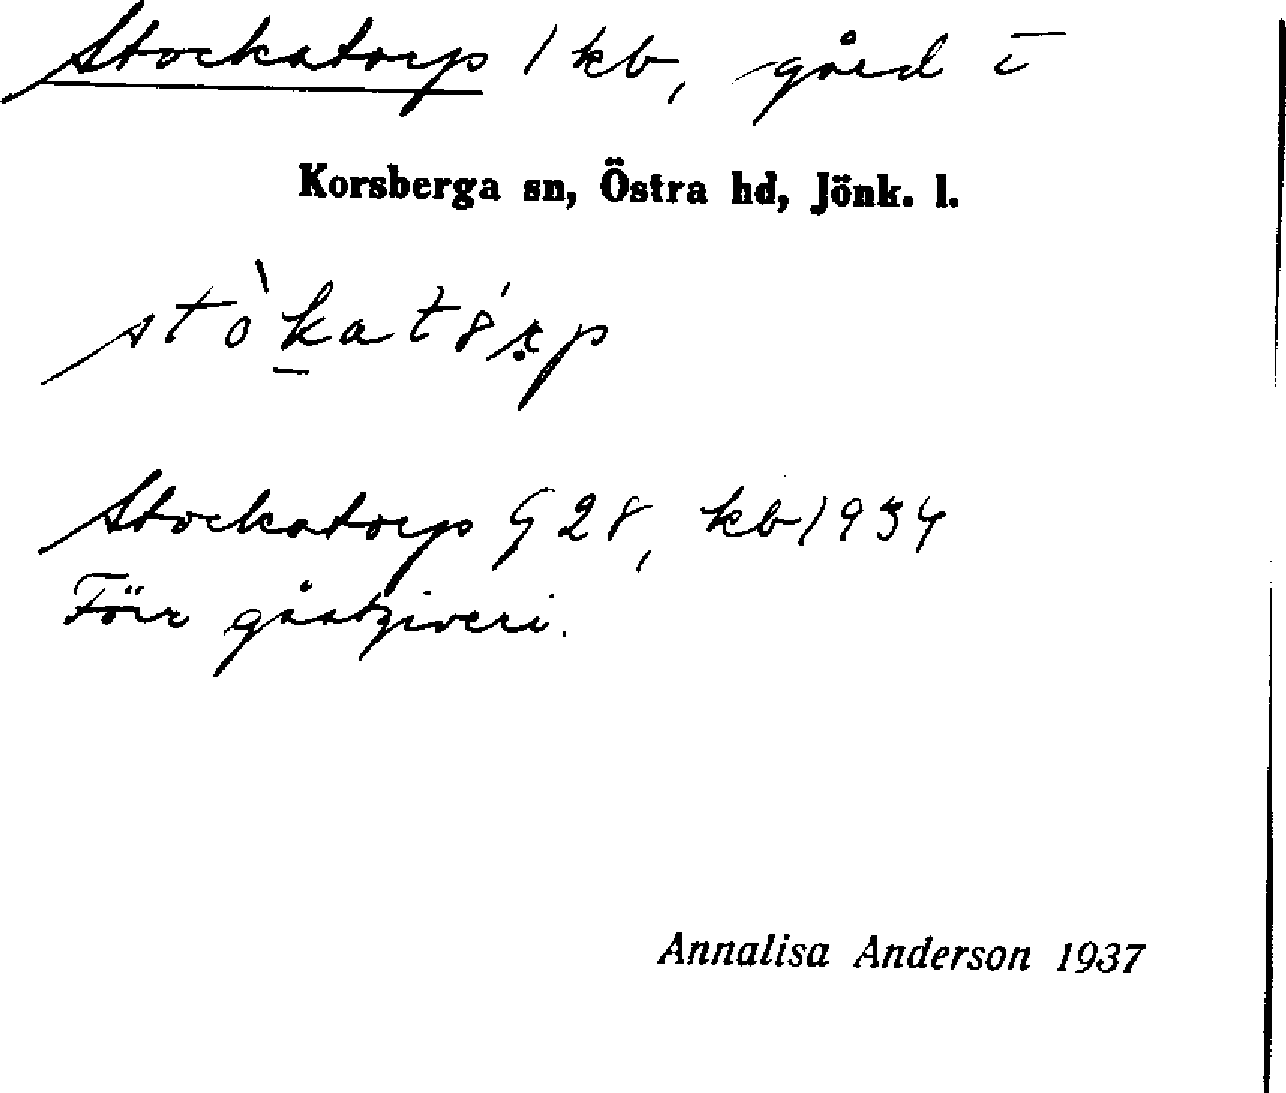 Stockatorp 1 kb, gård i
Korsberga sn, Östra hd, Jönk. l.
Stockatorp G 28, kb 1934
Förr gästgiveri.
Annalisa Anderson 1937